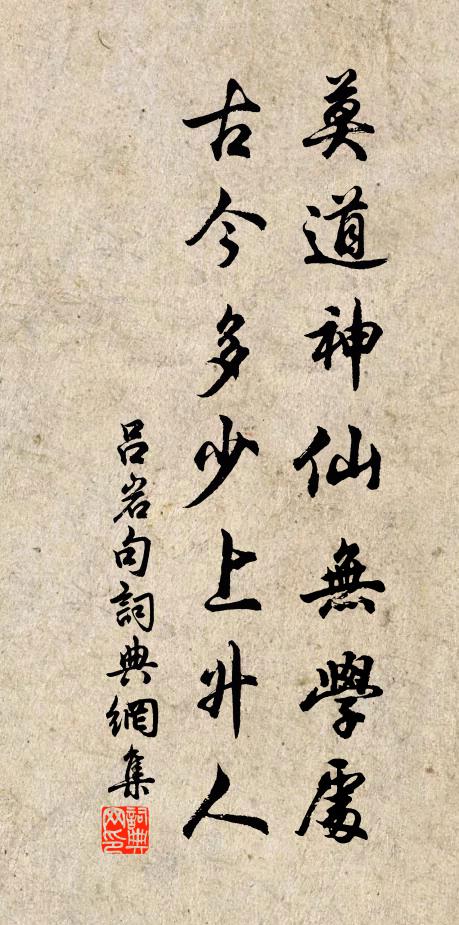 莫道神仙無學處
古今多少上升人
吕岩句詞典網集
詞典
网印